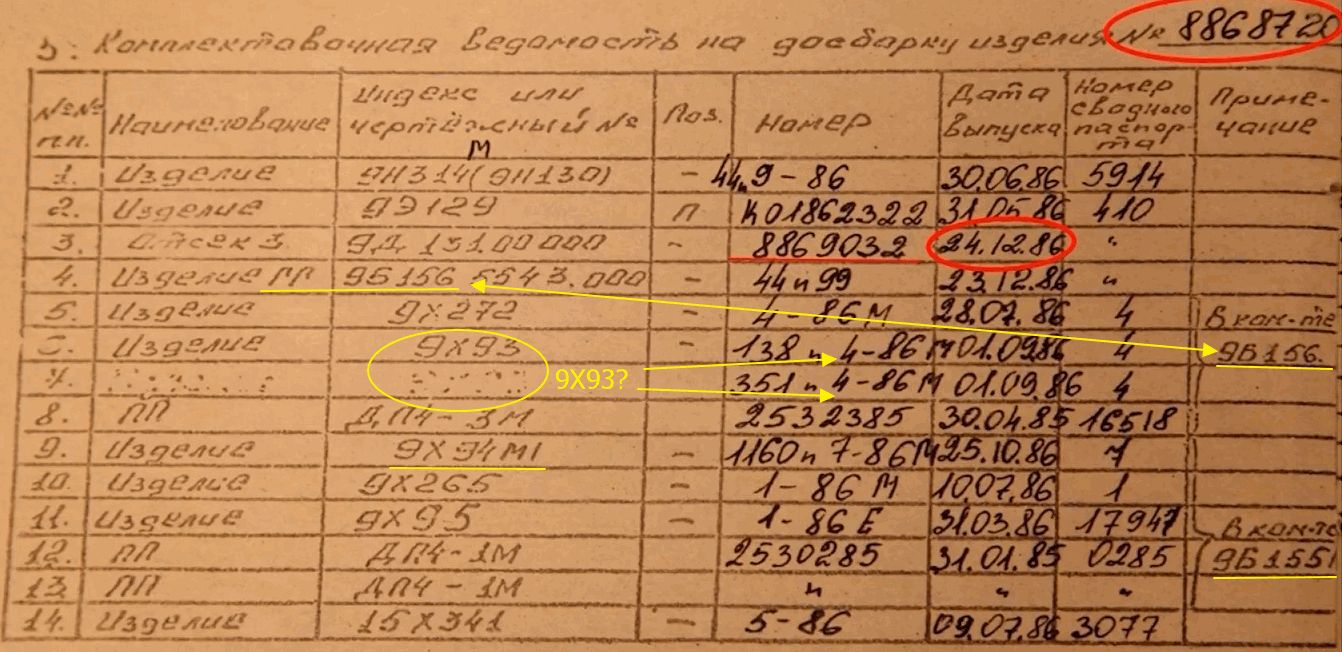 5. Комплектовочная ведомость на досборку изделия № 8868720
№№ п.п. Наименование Индекс или чертёжный № Поз. Номер Дата выпуска Номер сводного паспорта Примечание
М
1. Изделие 9Н314(9Н130) - 44п 9-86 30.06.86 5914
2. Изделие 9Э129 П К01862322 31.05.86 410
3. Отсек 3 9Д 131.00 000 - 8869032 24.12.86 "
4. Изделие ПП 9Б156 5543.000 - 44п99 23.12.86 "
5. Изделие 9Х272 - 4-86М 28.07.86 4 В ком-те
Изделие 9Х93 - 138п 4-86М 01.09.86 4 9Б156.
9X93? 351п 4-86М 01.09.86 4
8. ПП ДП4-3М 2532385 30.04.85 16518
9. Изделие 9Х94М1 - 1160п 7-86М 25.10.86 7
10. Изделие 9Х265 - 1-86М 10.07.86 1
11. Изделие 9Х95 - 1-86Е 31.03.86 17947 В ком-те
12. ПП ДП4-1М 2530285 31.01.85 0285 9Б155
13. ПП ДП4-1М " " "
14. Изделие 15Х341 - 5-86 09.07.86 3077